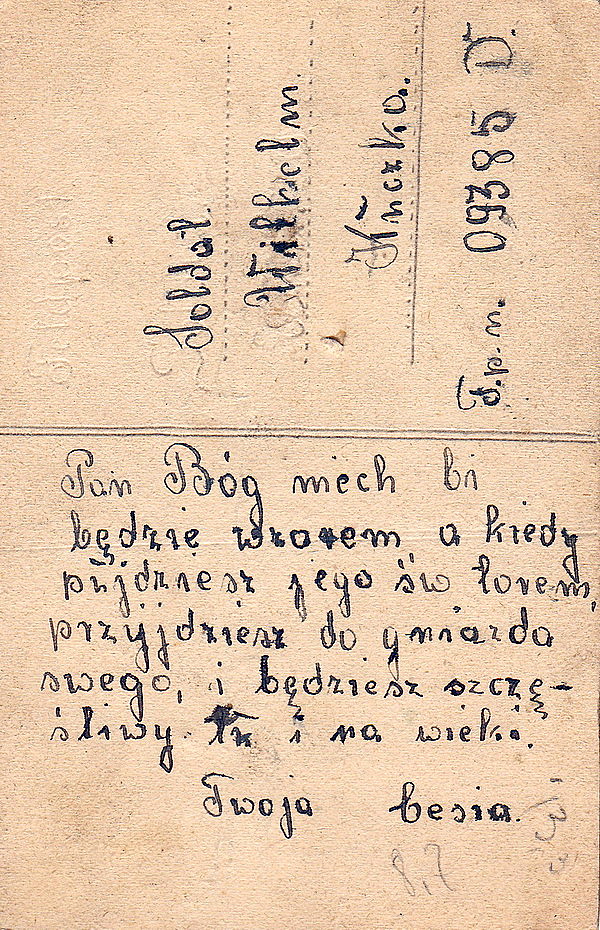 Soldat.
Wilhelm.
Kuczka.
F.p.n. 09385 D.
Pan Bóg niech bi
będzie wzorem a kiedy
pújdziesz jego św torem,
przyjdziesz do gniazda
swego, i będziesz szczę-
śliwy. tu i na wieki.
Twoja Cesia.
8,7